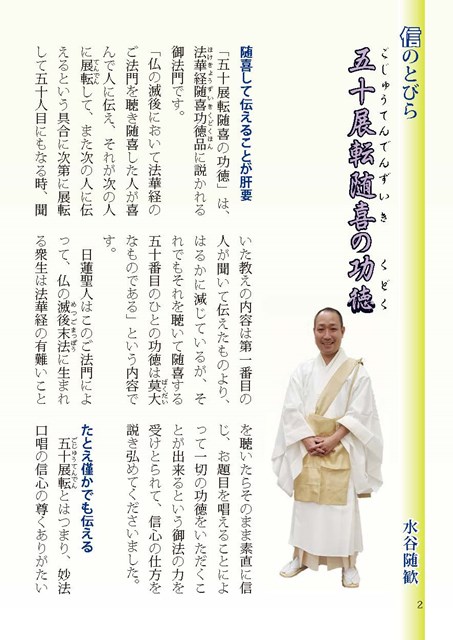 信のとびら
五十展転随喜の功徳
ごじゅうてんでんずいき くどく
水谷随歓
随喜して伝えることが肝要
「五十展転随喜の功徳」は、
法華経随喜功徳品に説かれる
ほけきょうずいきくどくほん
御法門です。
「仏の滅後において法華経の
ご法門を聴き随喜した人が喜
んで人に伝え、それが次の人
に展転して、また次の人に伝
てんでん
えるという具合に次第に展転
して五十人目にもなる時、聞
いた教えの内容は第一番目の
人が聞いて伝えたものより、
はるかに減じているが、そ
れでもそれを聴いて随喜する
五十番目のひとの功徳は莫大
ばくだい
なものである」という内容で
す。
日蓮聖人はこのご法門によ
って、仏の滅後末法に生まれ
めつごまっぽう
る衆生は法華経の有難いこと
を聴いたらそのまま素直に信
じ、お題目を唱えることによ
って一切の功徳をいただくこ
とが出来るという御法の力を
受けとられて、信心の仕方を
説き弘めてくださいました。
たとえ僅かでも伝える
五十展転とはつまり、妙法
ごじゅうてんでん
口唱の信心の尊くありがたい
2